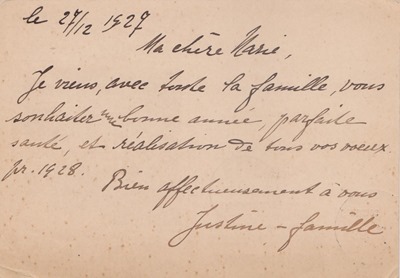 le 27/12 1927
Ma chère Marie,
Je viens, avec toute la famille, vous
souhaiter une bonne année, parfaite
santé, et réalisation de tous vos voeux
pr. 1928.
Bien affectueusement à vous
Justine - famille